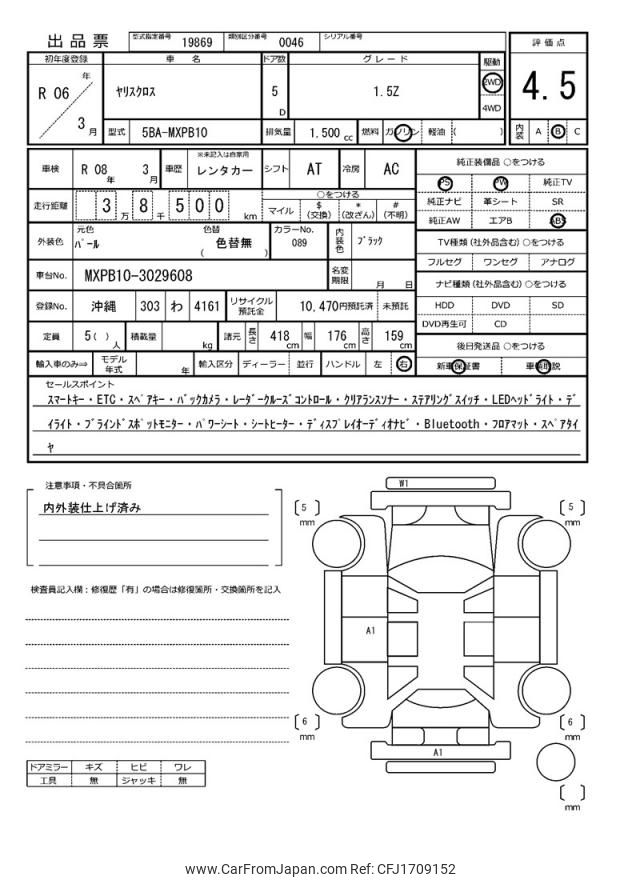 出品票 型式指定番号 19869 類別区分番号 0046 シリアル番号
初年度登録 車名 ドア数 グレード 駆動 評価点
R 06 年 3 月 ヤリスクロス 5 D 1.5Z 2WD 4WD 4.5
型式 5BA-MXPB10 排気量 1.500 cc 燃料 ガソリン 軽油 ( ) 内装 A B C
車検 R 08 年 3 月 車歴 ※未記入は自家用 レンタカー シフト AT 冷房 AC
純正装備品 ○をつける
PS PW 純正TV
純正ナビ 革シート SR
純正AW エアB ABS
走行距離 3 万 8 千 5 0 0 km
○をつける
マイル $ (交換) * (改ざん) # (不明)
TV種類 (社外品含む) ○をつける
フルセグ ワンセグ アナログ
外装色 元色 パール 色替 色替無 ( ) カラーNo. 089 内装色 ブラック
ナビ種類 (社外品含む) ○をつける
HDD DVD SD
DVD再生可 CD
車台No. MXPB10-3029608 名変期限 月 日
登録No. 沖縄 303 わ 4161 リサイクル預託金 10.470円預託済 未預託
定員 5( ) 人 積載量 kg 諸元 長さ 418 cm 幅 176 cm 高さ 159 cm
後日発送品 ○をつける
新車保証書 車輌取説
輸入車のみ⇒ モデル年式 年 輸入区分 ディーラー 並行 ハンドル 左 右
セールスポイント
スマートキー・ETC・スペアキー・バックカメラ・レーダークルーズコントロール・クリアランスソナー・ステアリングスイッチ・LEDヘッドライト・デ
イライト・ブラインドスポットモニター・パワーシート・シートヒーター・ディスプレイオーディオナビ・Bluetooth・フロアマット・スペアタイ
ヤ
注意事項・不具合箇所
内外装仕上げ済み
検査員記入欄：修復歴「有」の場合は修復箇所・交換箇所を記入
W1
5 mm
5 mm
A1
6 mm
6 mm
A1
mm
ドアミラー キズ ヒビ ワレ
工具 無 ジャッキ 無
www.CarFromJapan.com Ref: CFJ1709152